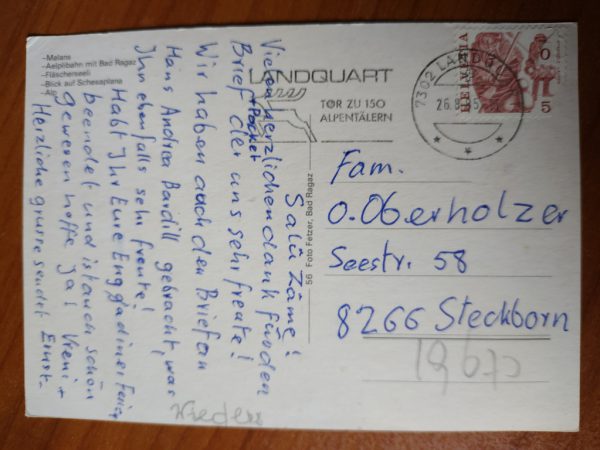 -Malans
-Aelplibahn mit Bad Ragaz
-Fläscherseeli
-Blick auf Schesaplana
-Alp
LANDQUART
TOR ZU 150
ALPENTÄLERN
7302 LANDQU
26.8. 5
HELVETIA
0
5
56 Foto Fetzer, Bad Ragaz
Salü Zäme!
Vielen herzlichen dank für den
+ Packet
Brief der uns sehr freute!
Wir haben auch den Brief an
Hans Andrea Bardill gebracht, was
Ihn ebenfalls sehr freute!
Habt Ihr Eure Enggadiner Ferien
beendet und ist auch schön
gewesen hoffe Ja!
Vreni +
Herzliche grüsse sendet Ernst.
Fam.
O. Oberholzer
Seestr. 58
8266 Steckborn